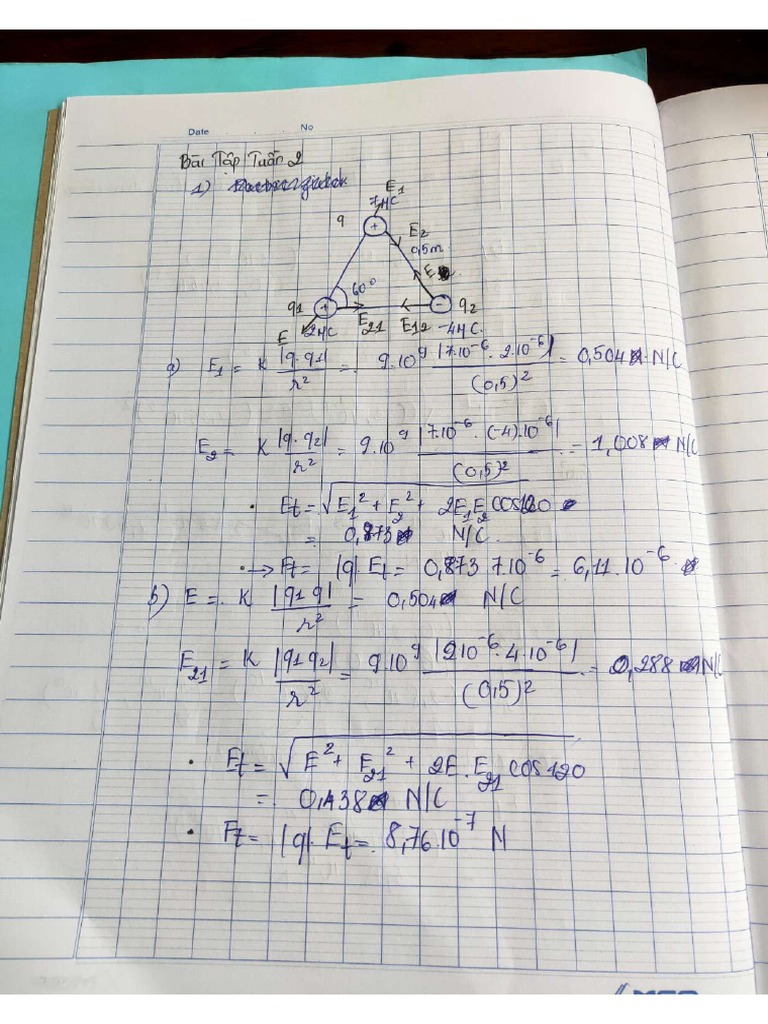 Date No
Bài Tập Tuần 2
1)
E1
7μC
q + E2
0,5m
60° E
q1 + - q2
E 2μC E21 E12 -4μC.
a) E1 = K |q.q1| / r² = 9.10⁹ |7.10⁻⁶ . 2.10⁻⁶| / (0,5)² = 0,504 N/C
E2 = K |q.q2| / r² = 9.10⁹ |7.10⁻⁶ . (-4).10⁻⁶| / (0,5)² = 1,008 N/C
• Et = √E1² + E2² + 2E1E2 cos120
= 0,873 N/C.
• → Ft = |q|.Et = 0,873 7.10⁻⁶ = 6,11.10⁻⁶
b) E = K |q1 q| / r² = 0,504 N/C
E21 = K |q1 q2| / r² = 9.10⁹ |2.10⁻⁶.4.10⁻⁶| / (0,5)² = 0,288 N/C
• Et = √E² + E21² + 2E.E21 cos120
= 0,438 N/C
• Ft = |q|.Et = 8,76.10⁻⁷ N